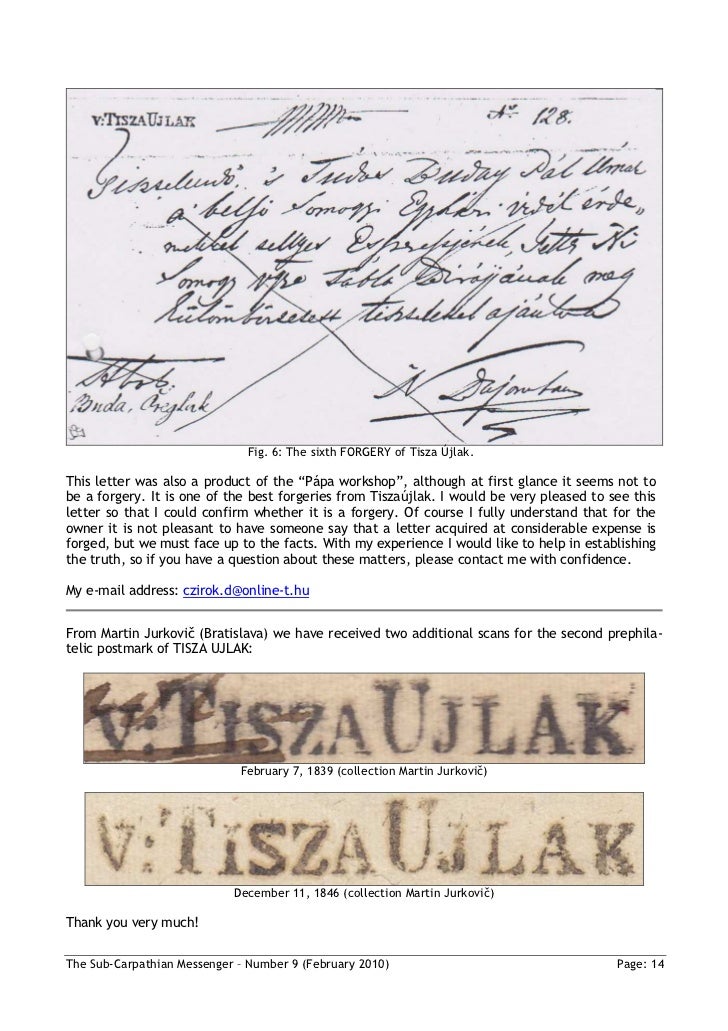 v:TISZAUJLAK No 128.
Buday Pál
a
Somogyi
Somogy Tábla meg
Buda,
Fig. 6: The sixth FORGERY of Tisza Újlak.
This letter was also a product of the “Pápa workshop”, although at first glance it seems not to
be a forgery. It is one of the best forgeries from Tiszaújlak. I would be very pleased to see this
letter so that I could confirm whether it is a forgery. Of course I fully understand that for the
owner it is not pleasant to have someone say that a letter acquired at considerable expense is
forged, but we must face up to the facts. With my experience I would like to help in establishing
the truth, so if you have a question about these matters, please contact me with confidence.
My e-mail address: czirok.d@online-t.hu
From Martin Jurkovič (Bratislava) we have received two additional scans for the second prephila-
telic postmark of TISZA UJLAK:
v:TISZAUJLAK
February 7, 1839 (collection Martin Jurkovič)
v:TISZAUJLAK
December 11, 1846 (collection Martin Jurkovič)
Thank you very much!
The Sub-Carpathian Messenger – Number 9 (February 2010) Page: 14